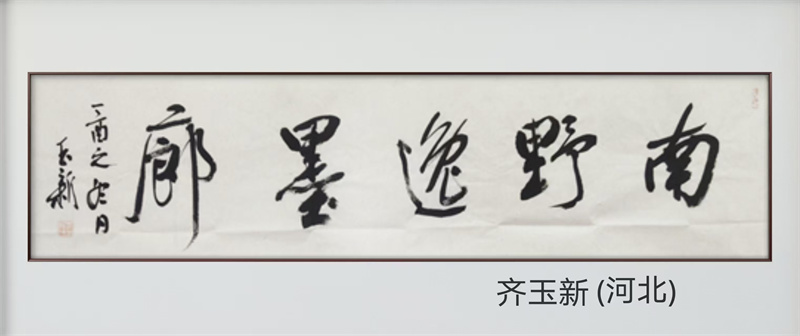 南野逸墨廊
丁酉之冬月
玉新
齐玉新(河北)